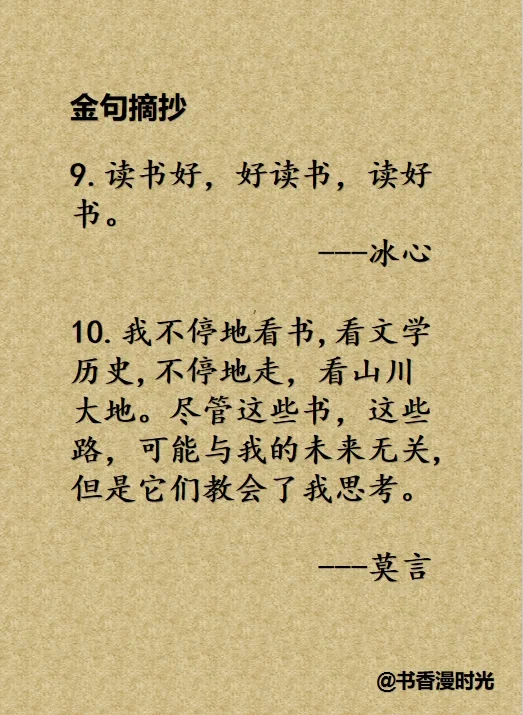 金句摘抄
9.读书好，好读书，读好
书。
---冰心
10.我不停地看书,看文学
历史,不停地走，看山川
大地。尽管这些书，这些
路，可能与我的未来无关,
但是它们教会了我思考。
---莫言
@书香漫时光